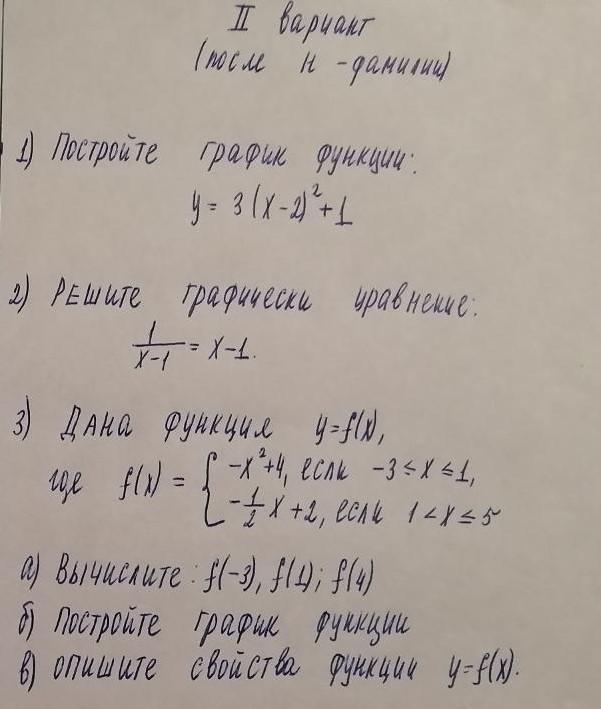 II вариант
(после н - фамилии)
1) Постройте график функции:
y = 3(x-2)²+1
2) РЕШИТЕ графически уравнение:
1/(x-1) = x-1.
3) ДАНА функция y=f(x),
где f(x) = { -x²+4, если -3≤x≤1,
-1/2 x+2, если 1<x≤5
а) Вычислите: f(-3), f(1); f(4)
б) Постройте график функции
в) опишите свойства функции y=f(x).